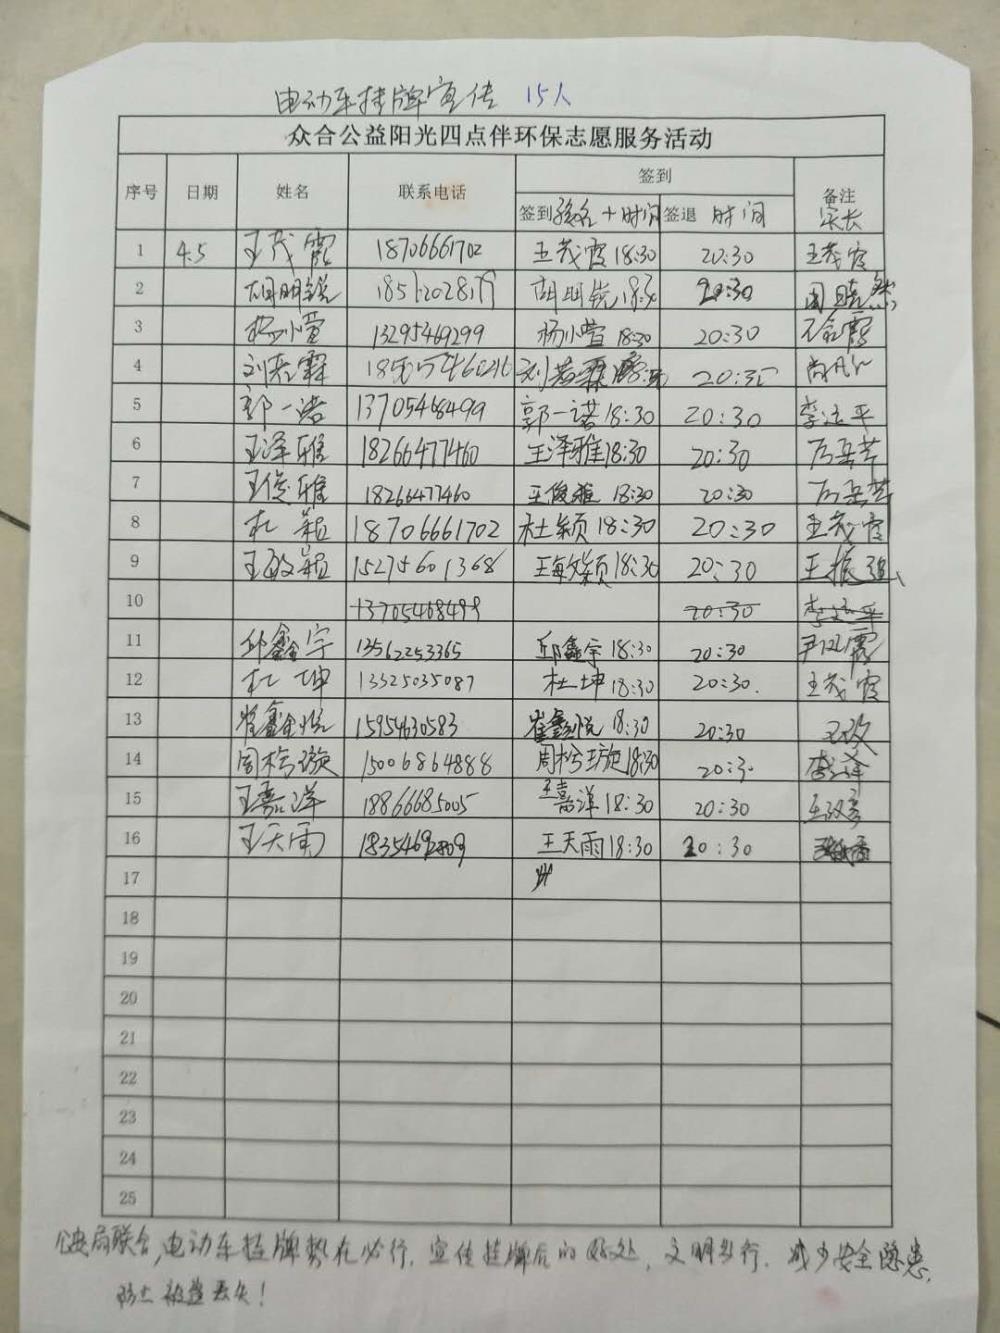 电动车挂牌宣传 15人
众合公益阳光四点伴环保志愿服务活动
序号 日期 姓名 联系电话 签到 备注
签到 姓名+时间 签退 时间 家长
1 4.5 王茂霞 18706661702 王茂霞 18:30 20:30 王茂霞
2 胡明锐 胡明锐 20:30 周晓然
3 杨小萱 13295469299 杨小萱 18:30 20:30
4 刘若霖 刘若霖 20:30
5 郭一诺 13705468499 郭一诺 18:30 20:30 李远平
6 王泽雅 18266477460 王泽雅 18:30 20:30
7 王俊雅 18266477460 王俊雅 18:30 20:30
8 杜颖 18706661702 杜颖 18:30 20:30 王茂霞
9 王敏颖 15275601368 王敏颖 18:30 20:30 王振强
10 13705468499 20:30 李远平
11 邱鑫宇 13562253365 邱鑫宇 18:30 20:30 尹风霞
12 杜坤 13325035087 杜坤 18:30 20:30. 王茂霞
13 崔鑫悦 15954630583 崔鑫悦 18:30 20:30
14 周柃璇 15006864888 周柃璇 18:30 20:30
15 王嘉洋 18866685005 王嘉洋 18:30 20:30
16 王天雨 王天雨 18:30 20:30
17
18
19
20
21
22
23
24
25
公安局联合,电动车挂牌势在必行.宣传挂牌后的好处,文明出行.减少安全隐患,
防止被盗丢失!